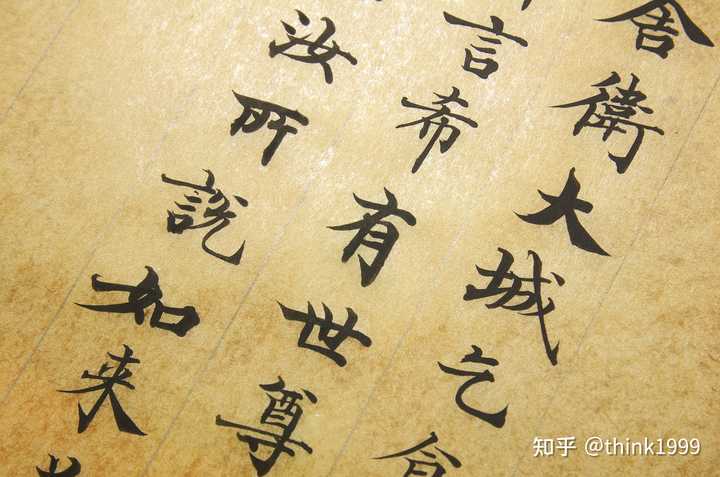 舍衛大城乞食
言希有世尊
汝所說如来
知乎 @think1999